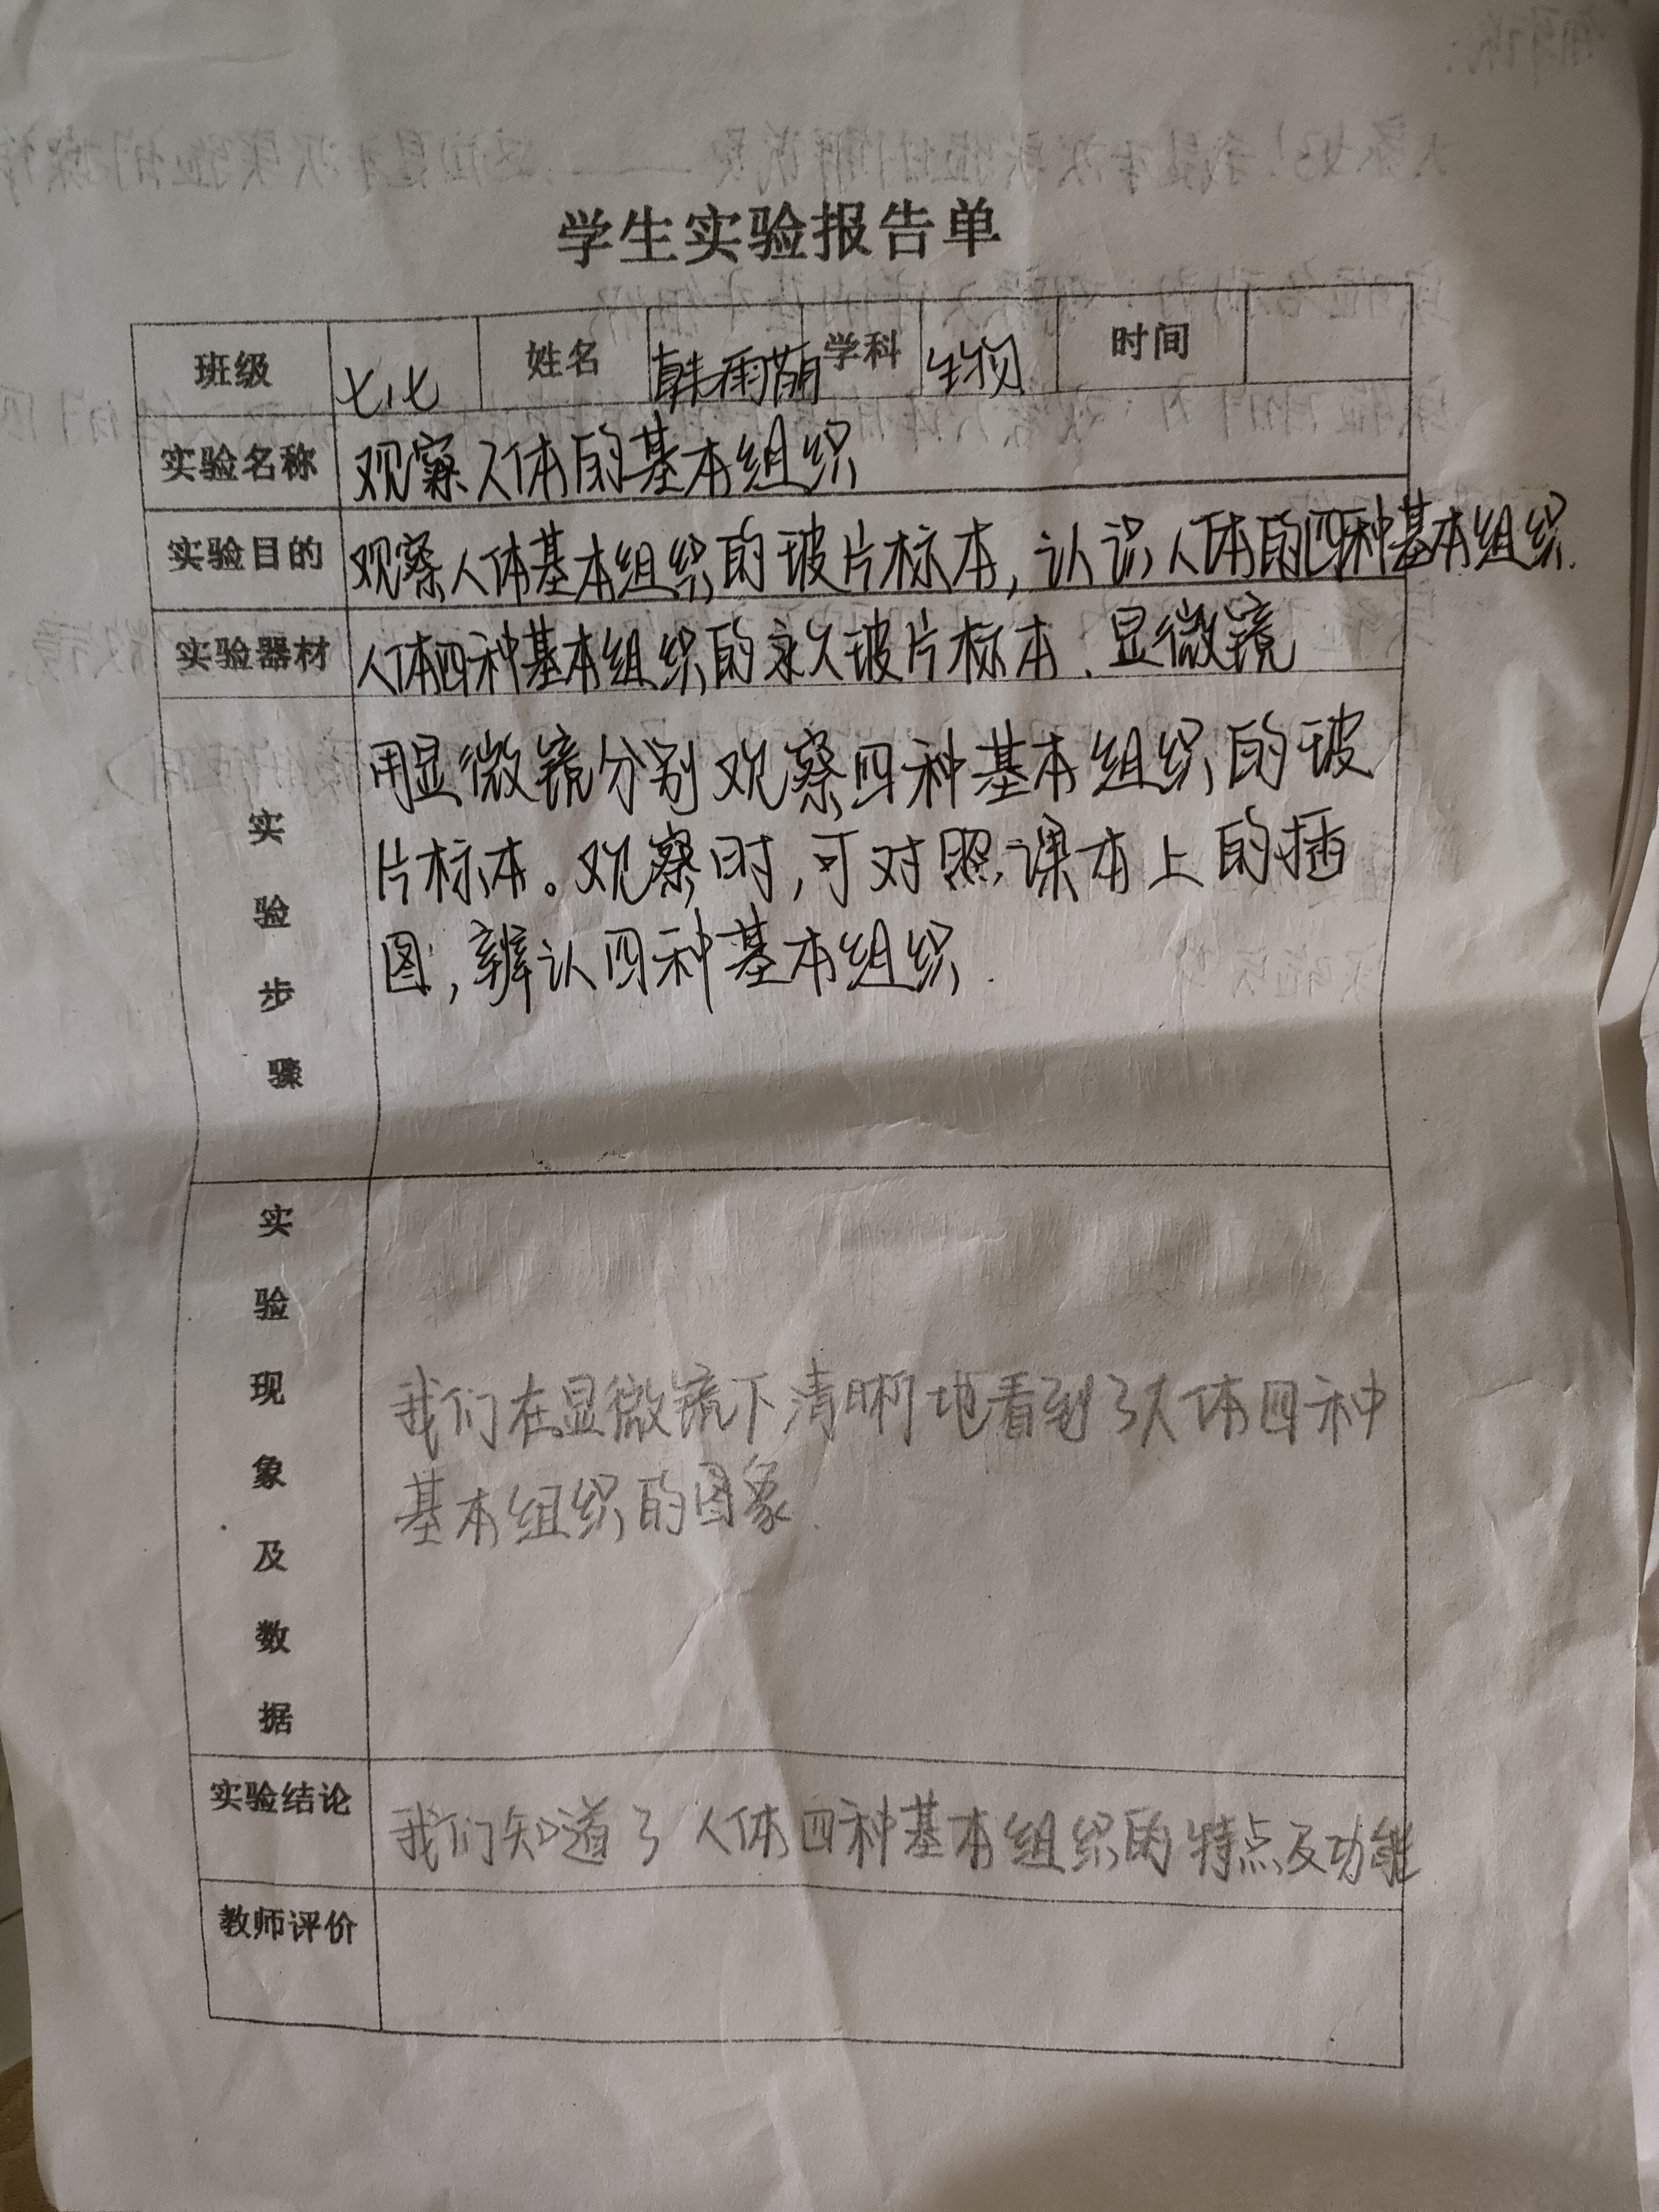 学生实验报告单
班级 七、七 姓名 韩雨萌 学科 生物 时间
实验名称 观察人体的基本组织
实验目的 观察人体基本组织的玻片标本，认识人体的四种基本组织.
实验器材 人体四种基本组织的永久玻片标本、显微镜
实验步骤
用显微镜分别观察四种基本组织的玻
片标本。观察时，可对照课本上的插
图，辨认四种基本组织.
实验现象及数据
我们在显微镜下清晰地看到了人体四种
基本组织的图象.
实验结论 我们知道了人体四种基本组织的特点及功能
教师评价